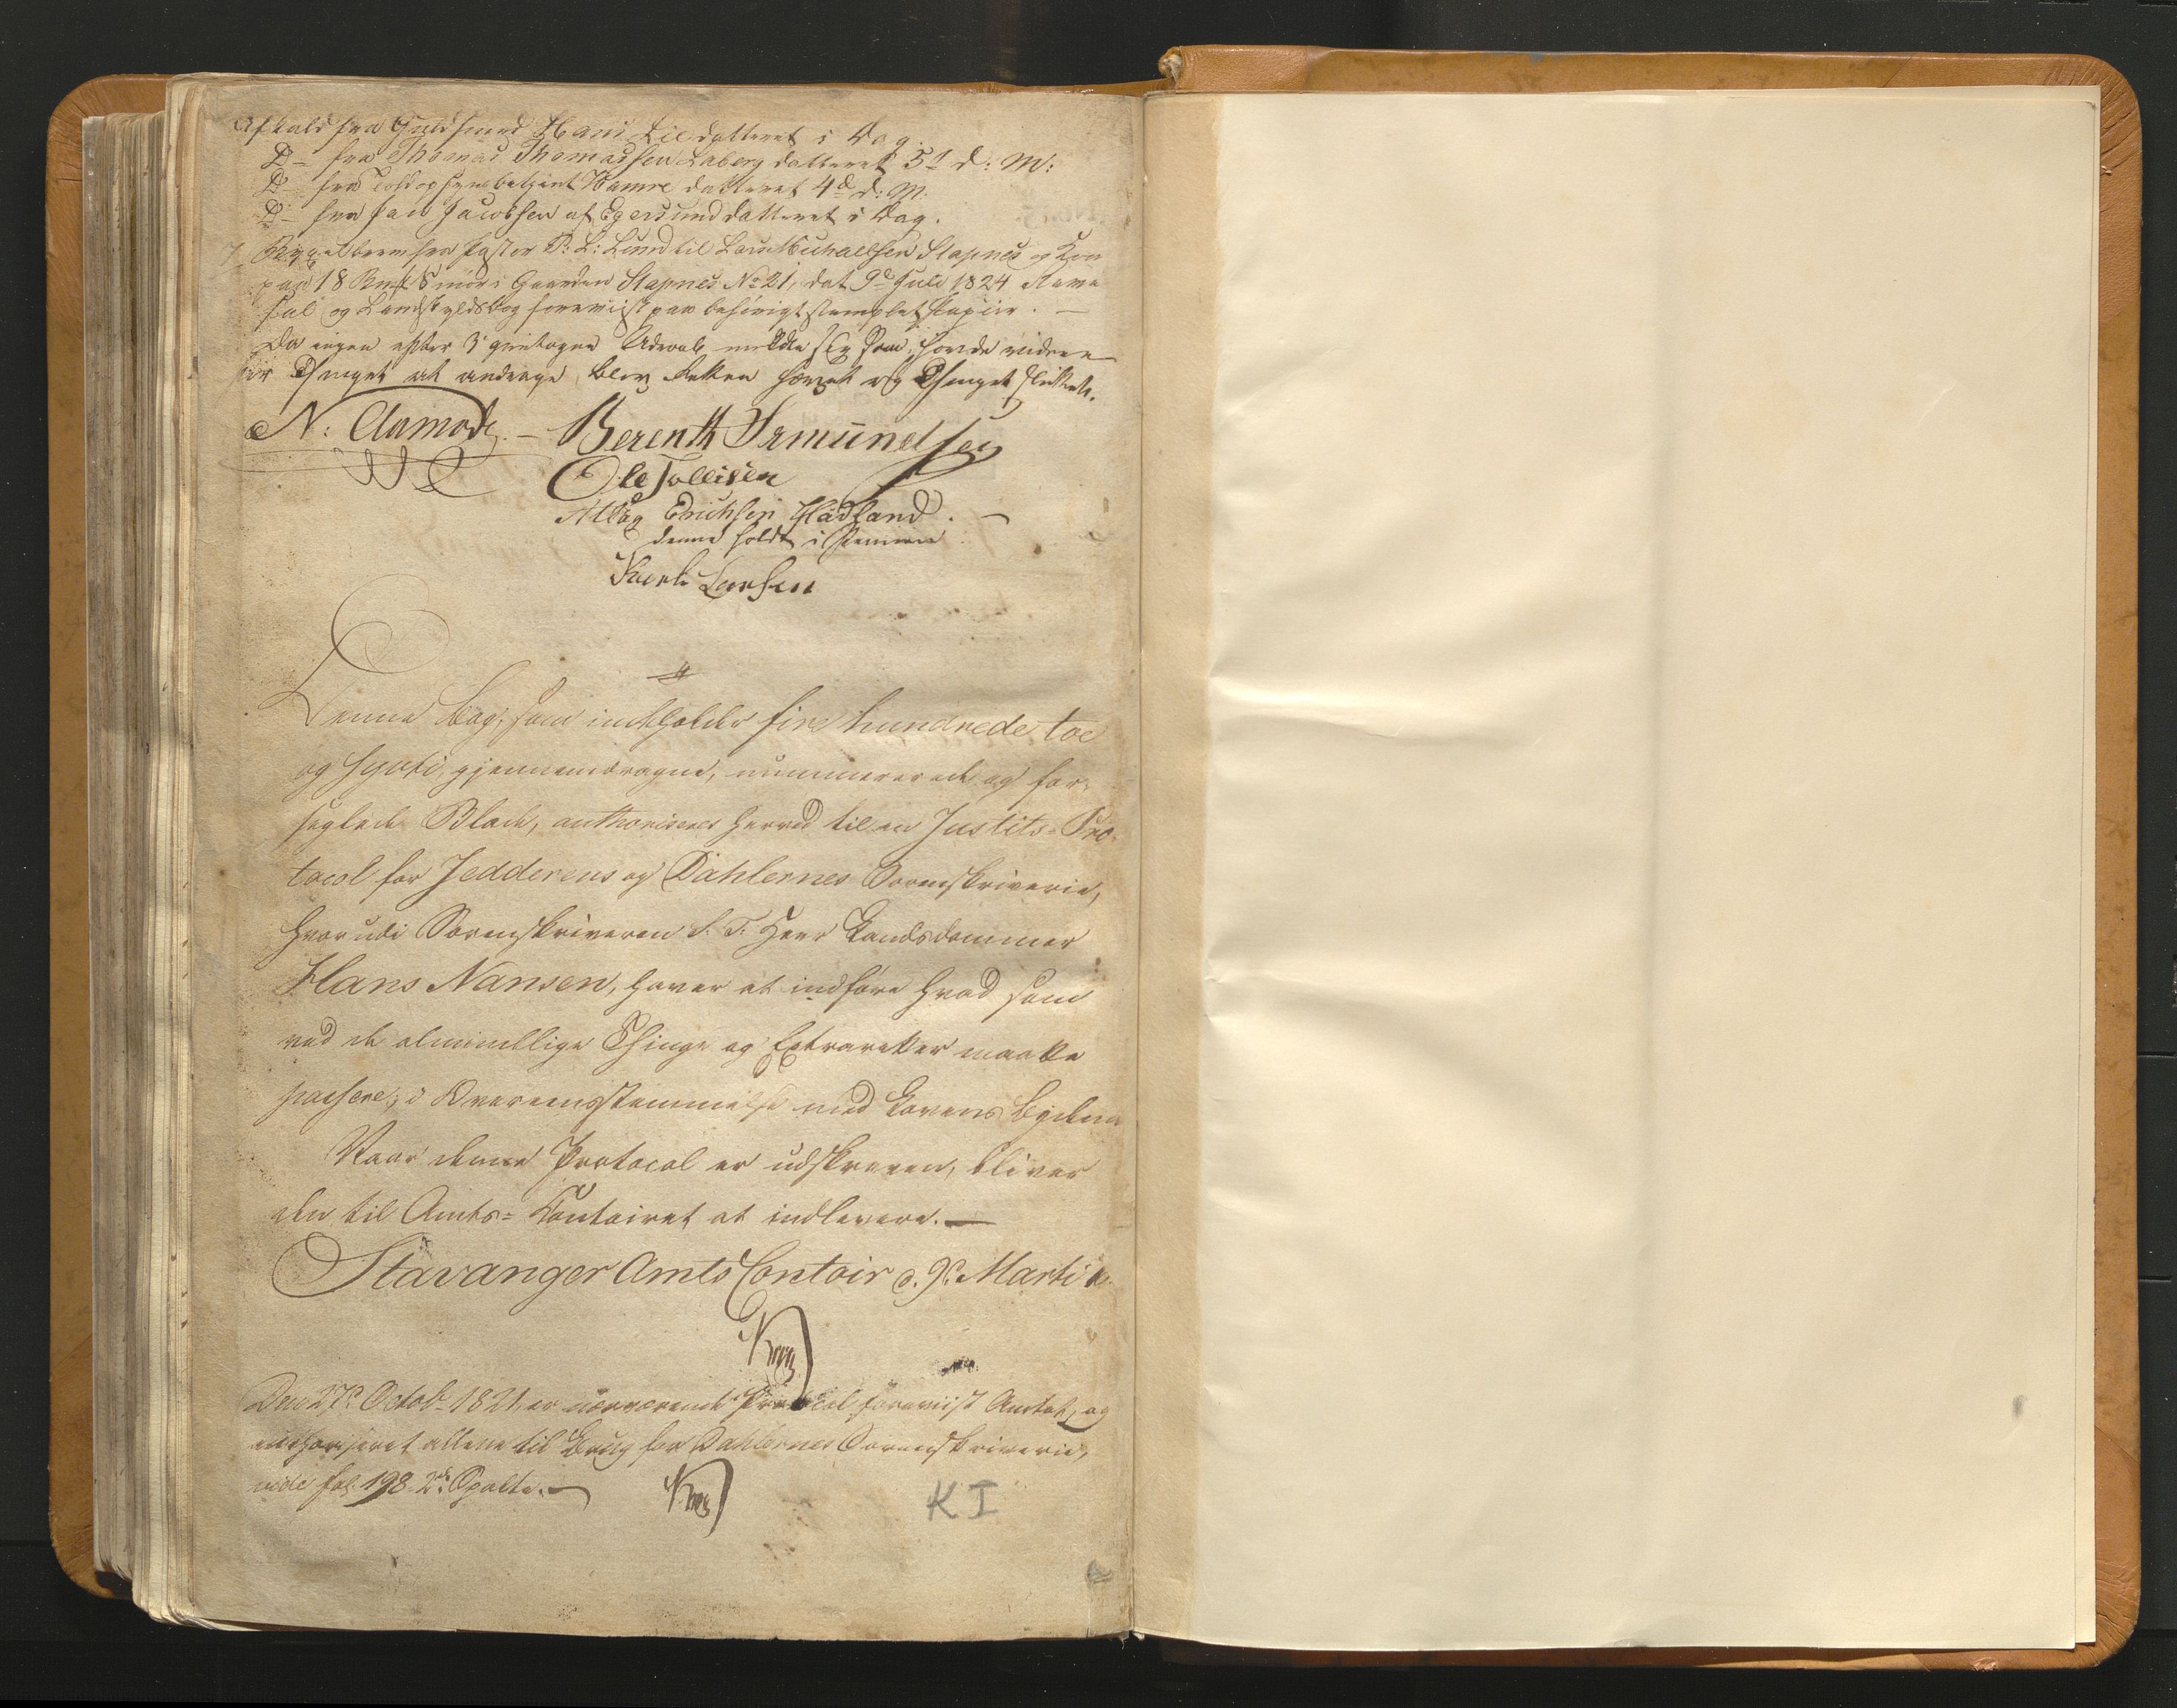 Afkald fra Guldsmed Hans Lie datteret i Dag.
D– fra Thomas Thomassen Aaberg datteret 5t d: M:
D– fra Toldopsynsbetjent Hamre datteret 4de d: M.
D– fra Jacobsen af Egersund datteret i Dag.
7 Bygselbrev fra Pastor P: L: Lund til Lars Michaelsen Stapnes og Kone
paa 18 Smør i Gaarden Stapnes No 21, dat 9de Juli 1824
og Landskyldsbog foreviist paa behørigt stemplet Papiir. –
Da ingen efter 3 gientagne Udraab meldte sig som havde videre
for Thinget at andrage, blev Retten hævet og Thinget sluttet.
N: Aamodt. – Berenth Ormundsen
Ole Tollisen
Atlag Erichsen Hadland. –
denne holdt i Pennen
Larsen
Denne Bog, som indeholder fire hundrede toe
og tyve, gjennemdragne, nummererede og for-
seglede Blade, authoriseres herved til en Justits-Pro-
tocol for Jedderens og Dahlernes Sorenskriverie,
hvorudi Sorenskriveren S. T. Herr Landsdommer
Hans Nansen, haver at indføre hvad som
ved de almindelige Thinge og Extraretter maatte
passere, i Overeensstemmelse med Lovens Bydende
Naar denne Protocol er udskreven, bliver
den til Amts-Contoiret at indlevere. –
Stavanger Amts Contoir d. 9de Marti
Krog
Den 27de Octobr 1821 er nærværende Protocol foreviist Amtet, og
authoriseret allene til Brug for Dahlernes Sorenskriverie,
vide fol. 198 2den Spalte. –
Krog
K I